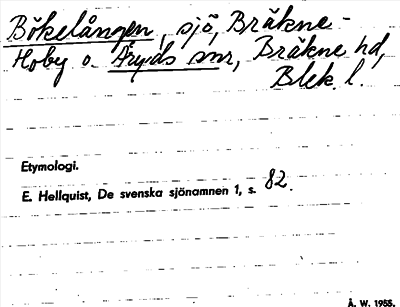 Bökelången, sjö, Bräkne-
Hoby o. Åryds snr, Bräkne hd,
Blek. l.
Etymologi.
E. Hellquist, De svenska sjönamnen 1, s. 82.
Å. W. 1955.